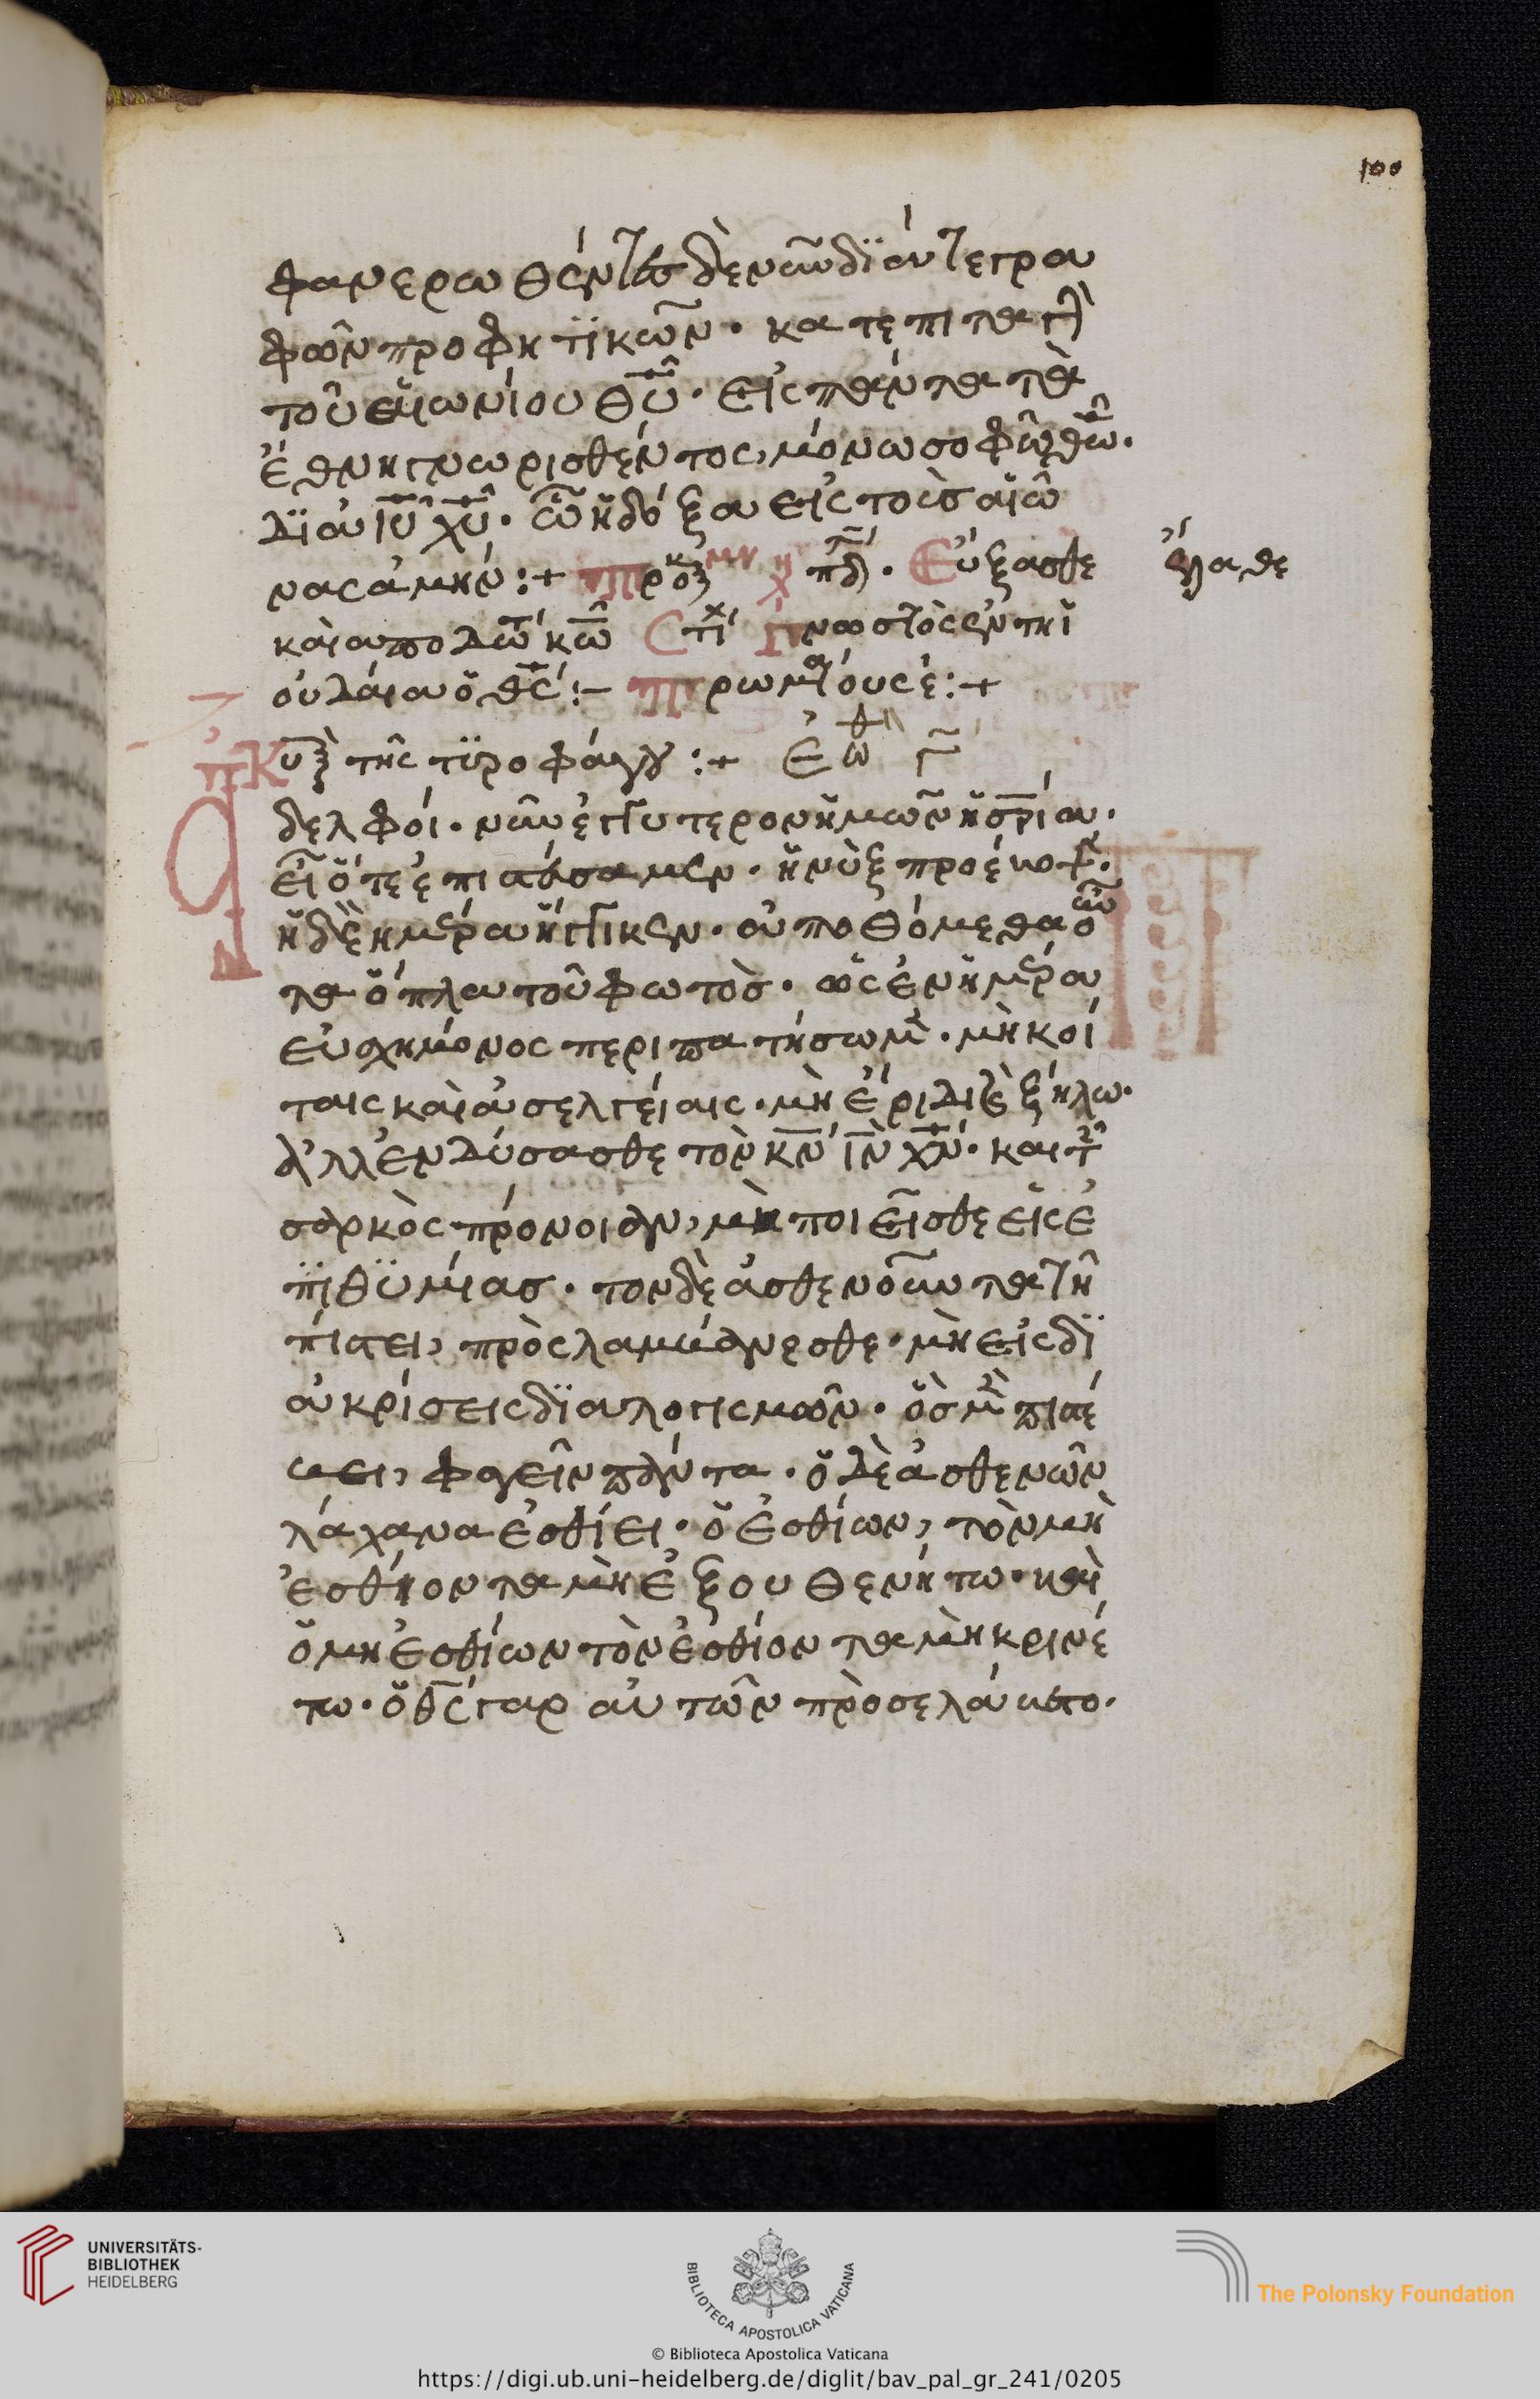 100
φανερωθέντος δὲ νῦν δϊάντε γρα
φῶν προφητϊκῶν · κατεπιταγὴ
τοῦ αἰωνίου θυ̅ · εἰς πάντα τὰ
ἔθνη γνωρισθέντος, μόνω σοφῶ θῶ ·
δϊὰ ιυ̅ χυ̅ · ὧ ἡ δόξα εἰς τοὺσ αἰῶ
νας ἀμήν :+ προκ μν η χ πδ · Εὔξασθε
ἔλαθε
καὶ απόδωτ κω̅ Στιχ Γνωστὸς ἐν τηῒ
ουδάια ὁ θς̅ :- πρ ρωμαίους έ :+
Κυ τῆς τϋροφάγου :+ Ἐω
δελφοί · νῦν ἐγγυτερον ἡμῶν ἡ σρία ·
εἰ ὅτε ἐπιστεύσαμεν · ἡ νὺξ προέκοψ ·
ἡ δὲ ἡμέρα ἤγγικεν · ἀποθόμεθα οὖν
τα ὅπλα τοῦ φωτὸσ · ὡς ἐν ἡμέρα
εὐσχημόνος περιπατήσωμ · μὴ κοί
ταις καὶ ἀσελγείαις · μὴ ἔριδι καὶ ζήλω ·
ἀλλ' ἐνδύσασθε τὸν κν̅ ιν̅ χν̅ · καὶ τ
σαρκὸς πρόνοιαν, μὴ ποιεῖσθε εἰς ἐ
πϊθϋμίασ · τον δὲ ἀσθενοῦντα τῆ
πίστει, πρὸς λαμβάνεσθε · μὴ εἰς δϊ
ακρίσεις δϊαλογισμῶν · ὃσ μ πιστέ
υει, φαγεῖν πάντα · ὁ δὲ ἀσθενῶν
λάχανα ἐσθίει · ὁ ἐσθίων, τὸν μὴ
ἐσθίοντα μὴ ἐξουθενήτω · καὶ
ὁ μη ἐσθίων τὸν ἐσθίοντα μὴ κρινέ
τω · ὁ θς̅ γαρ αὐτῶν πρὸσελάβετο ·
UNIVERSITÄTS-
BIBLIOTHEK
HEIDELBERG
BIBLIOTECA APOSTOLICA VATICANA
The Polonsky Foundation
© Biblioteca Apostolica Vaticana
https://digi.ub.uni-heidelberg.de/diglit/bav_pal_gr_241/0205